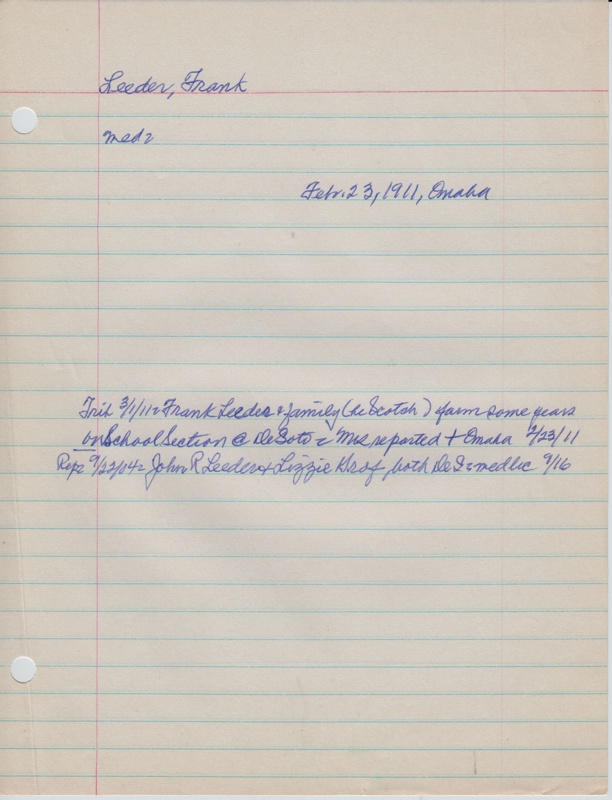 Leeder, Frank
med=
Febr. 23, 1911, Omaha
Trib 3/1/11= Frank Leeder & family (he Scotch) farm some years
on School Section @ DeSoto = Mrs reported + Omaha 2/23/11
Rep= 9/22/04= John R Leeder & Lizzie both DeS = med lic 9/16